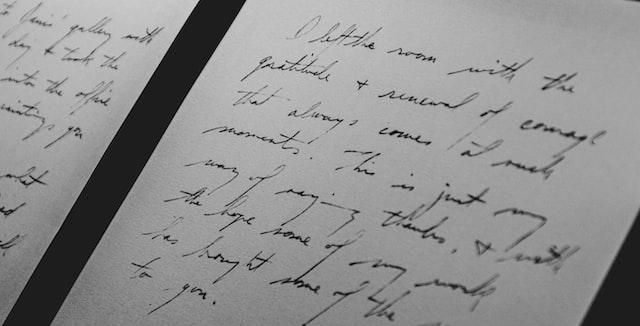 to Jim's gallery with
day & took the
into the office
paintings you
what
I left the room with the
gratitude & renewal of courage
that always comes at such
moments. This is just my
way of saying thanks, & with
the hope some of my work
has brought some of the
to you.